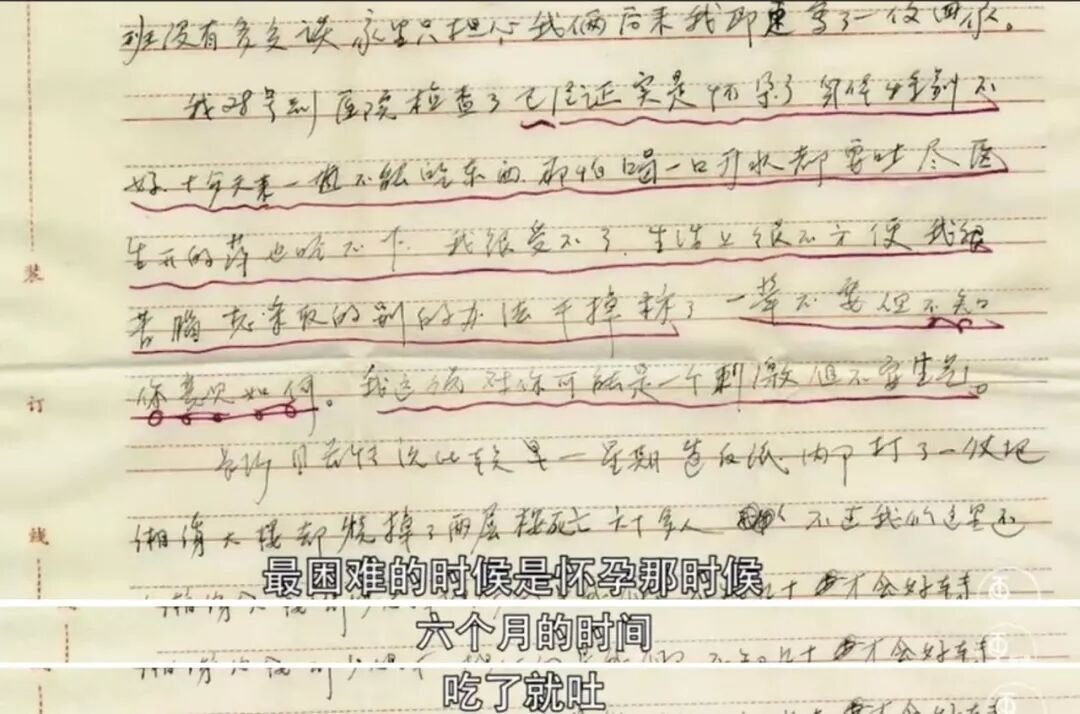 班没有多交谈 家里只担心我俩后来我即速写了一份回信。
我28号到医院检查了已经证实是怀孕了 身体特别不
好、十多天来一直不能吃东西,那怕喝一口开水都要吐尽 医
生开的药也吃不下. 我很受不了、生活上很不方便 我很
苦脑 想采取的别的办法干掉 算了 一辈不要但不知
你意见如何。我这样对你可能是一个刺激但不要生气。
长沙目前情况比较 是一星期 造反派 内部打了一仗把
湘绣大楼却烧掉了两层楼死亡六十多人 不过我们这里还
最困难的时候是怀孕那时候
才会好
六个月的时间
才会好
吃了就吐
装
订
线